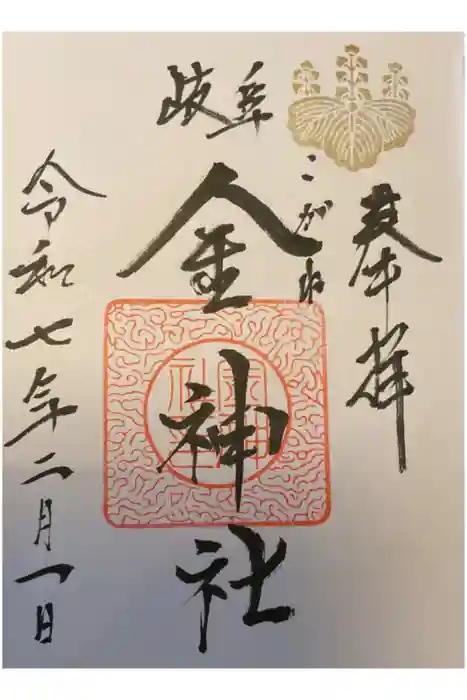 奉拝
こがね
岐阜
金神社
令和七年二月一日